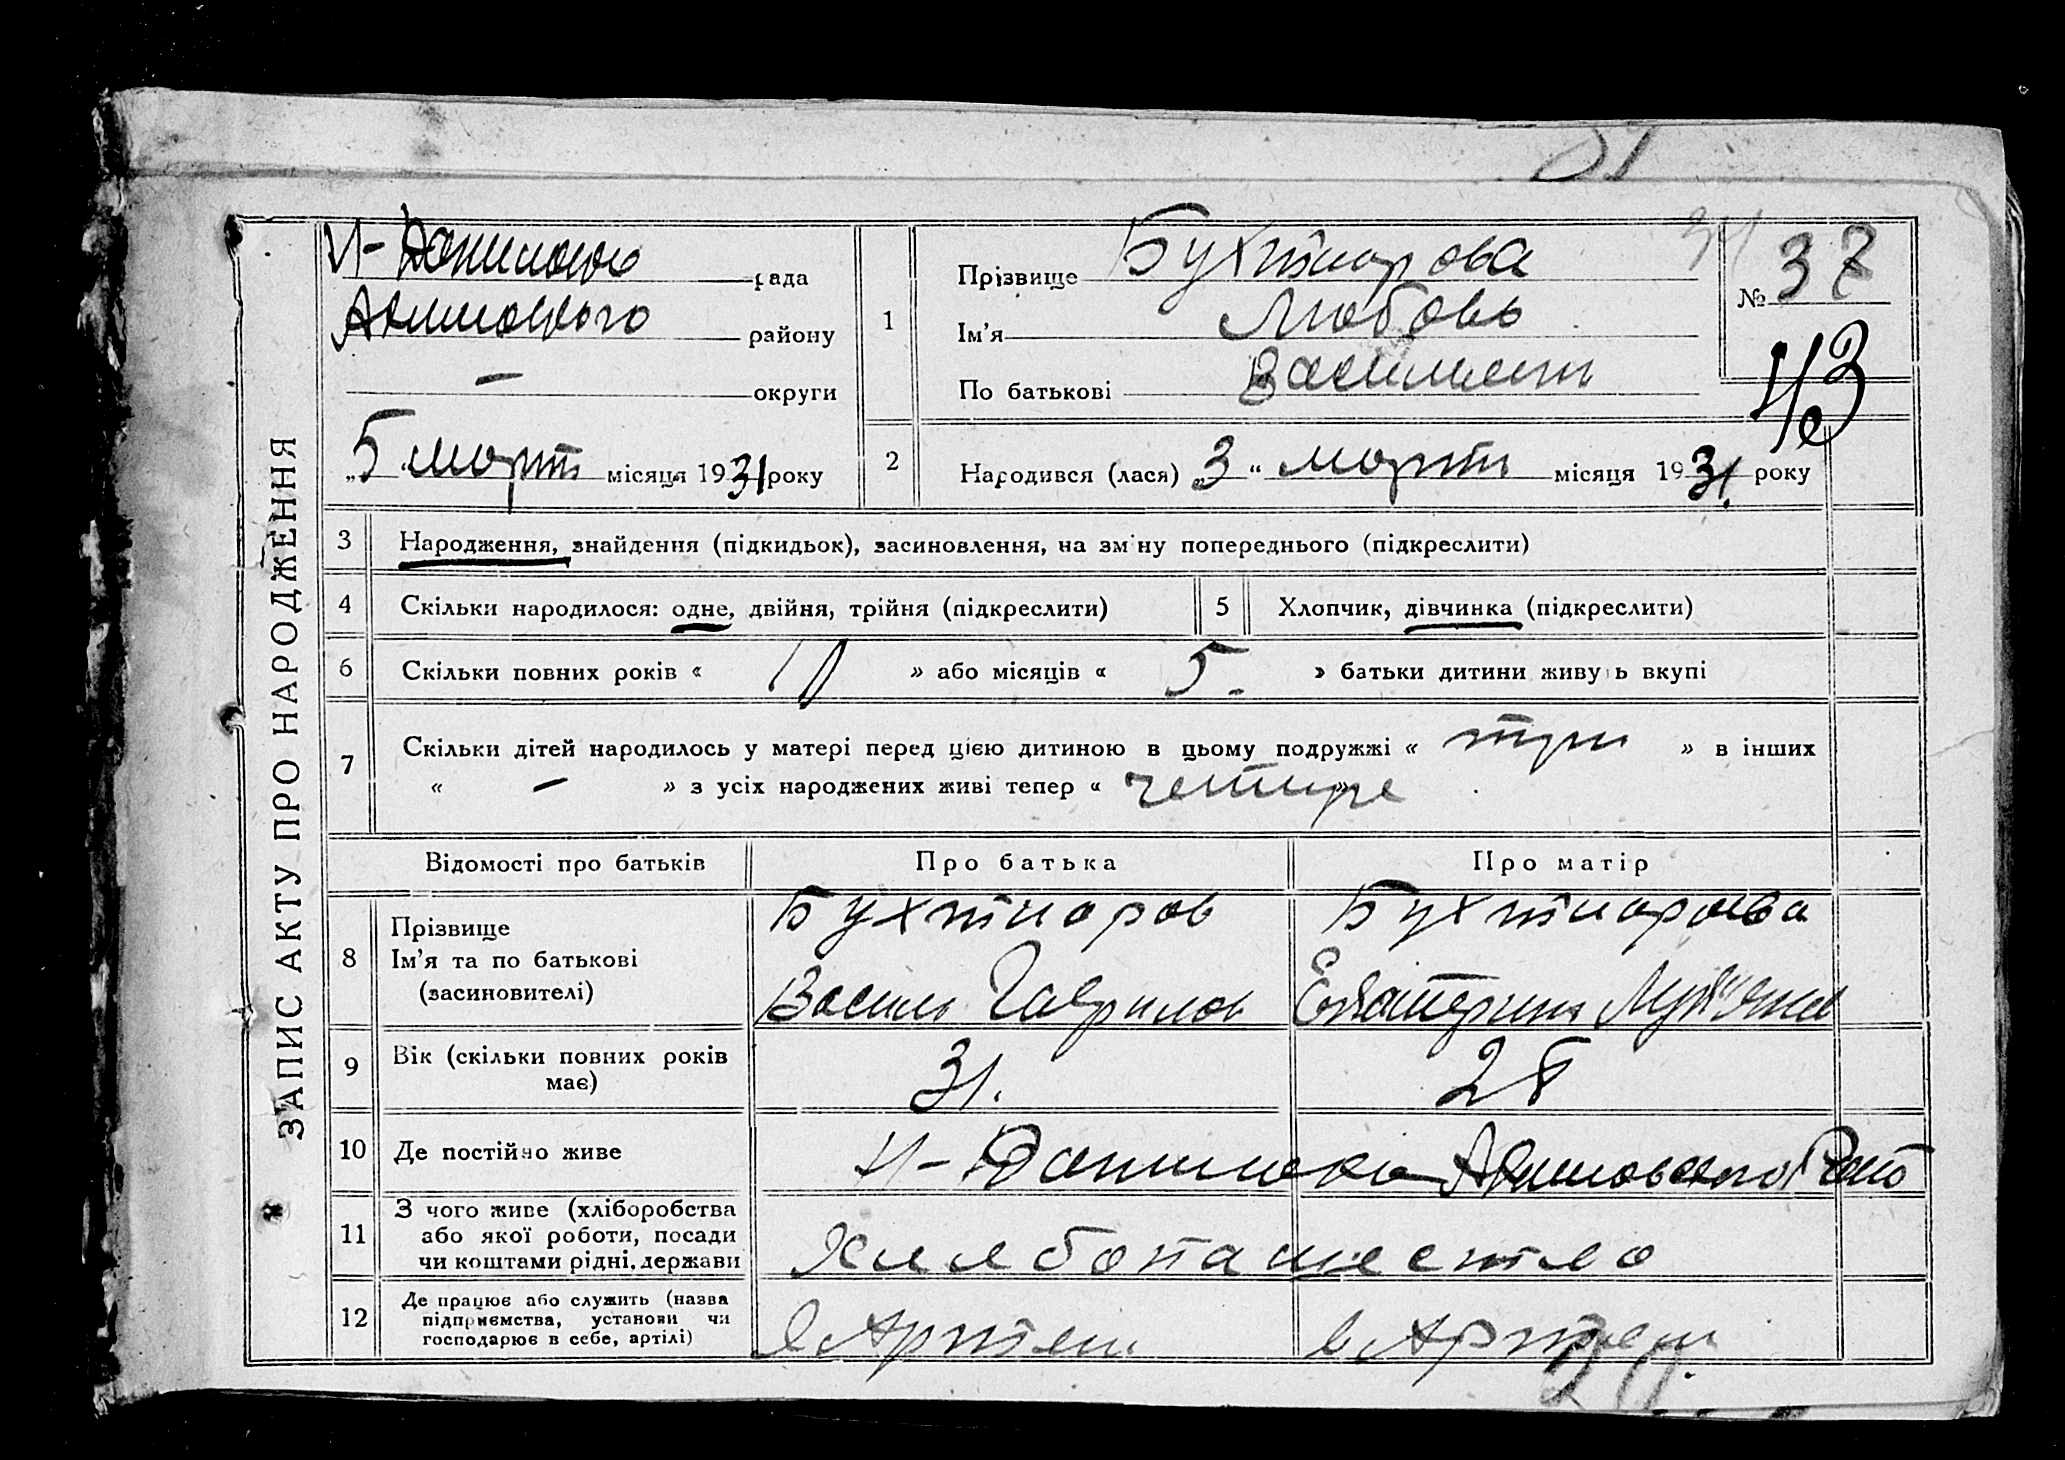 ЗАПИС АКТУ ПРО НАРОДЖЕННЯ
рада
района
округи
„5 март місяця 1931 року
1
Прізвище Бухтиарова
Ім'я Любовь
По батькові
№ 37
43
2
Народився (лася) „3“ март місяця 1931. року
3 Народження, знайдення (підкидьок), засиновлення, на зміну попереднього (підкреслити)
4 Скільки народилося: одне, двійня, трійня (підкреслити) 5 Хлопчик, дівчинка (підкреслити)
6 Скільки повних років « 10 » або місяців « 5. » батьки дитини живуть вкупі
7 Скільки дітей народилось у матері перед цією дитиною в цьому подружжі « три » в інших
« — » з усіх народжених живі тепер « четире »
Відомості про батьків Про батька Про матір
8 Прізвище Бухтиаров Бухтиарова
Ім'я та по батькові
(засиновителі) Василь Гаврилов Екатерина
9 Вік (скільки повних років має) 31. 28
10 Де постійно живе
11 З чого живе (хліборобства
або якої роботи, посади
чи коштами рідні, держави
12 Де працює або служить (назва
підприємства, установи чи
господарює в себе, артілі) в Артели в Артели